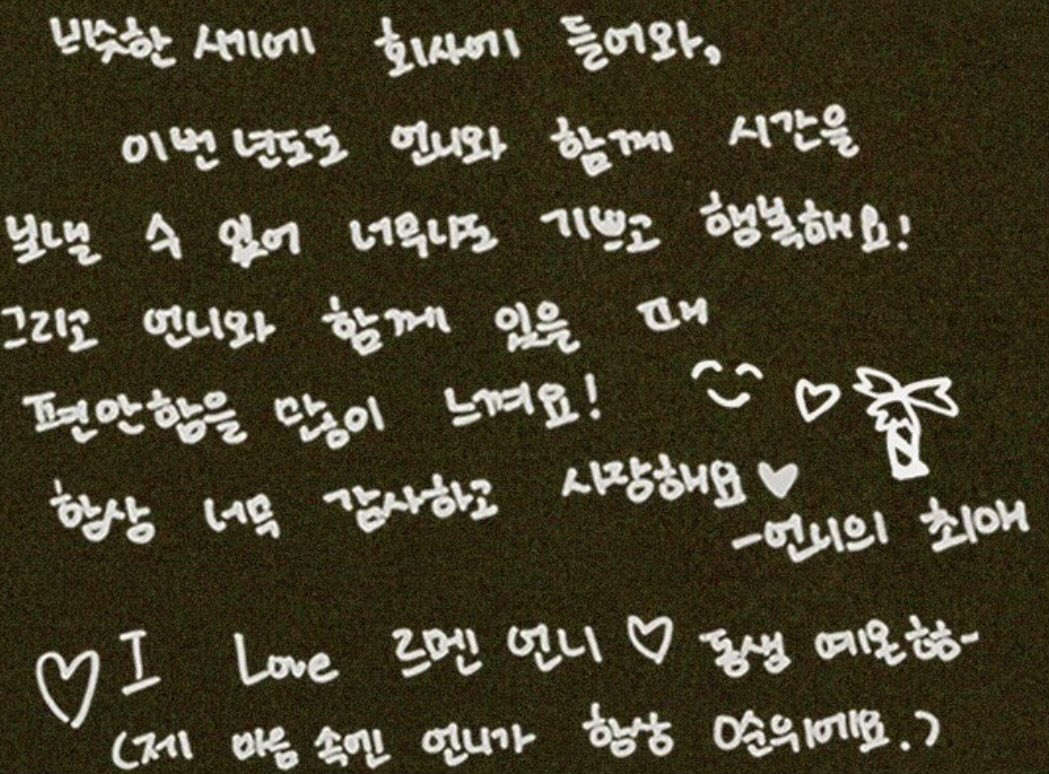 비슷한 시기에 회사에 들어와,
이번 년도도 언니와 함께 시간을
보낼 수 있어 너무나도 기쁘고 행복해요!
그리고 언니와 함께 있을 때
편안함을 많이 느껴요!
항상 너무 감사하고 사랑해요♥
-언니의 최애
♡ I Love 르멘 언니 ♡ 동생 예온
(제 마음 속엔 언니가 항상 0순위에요.)